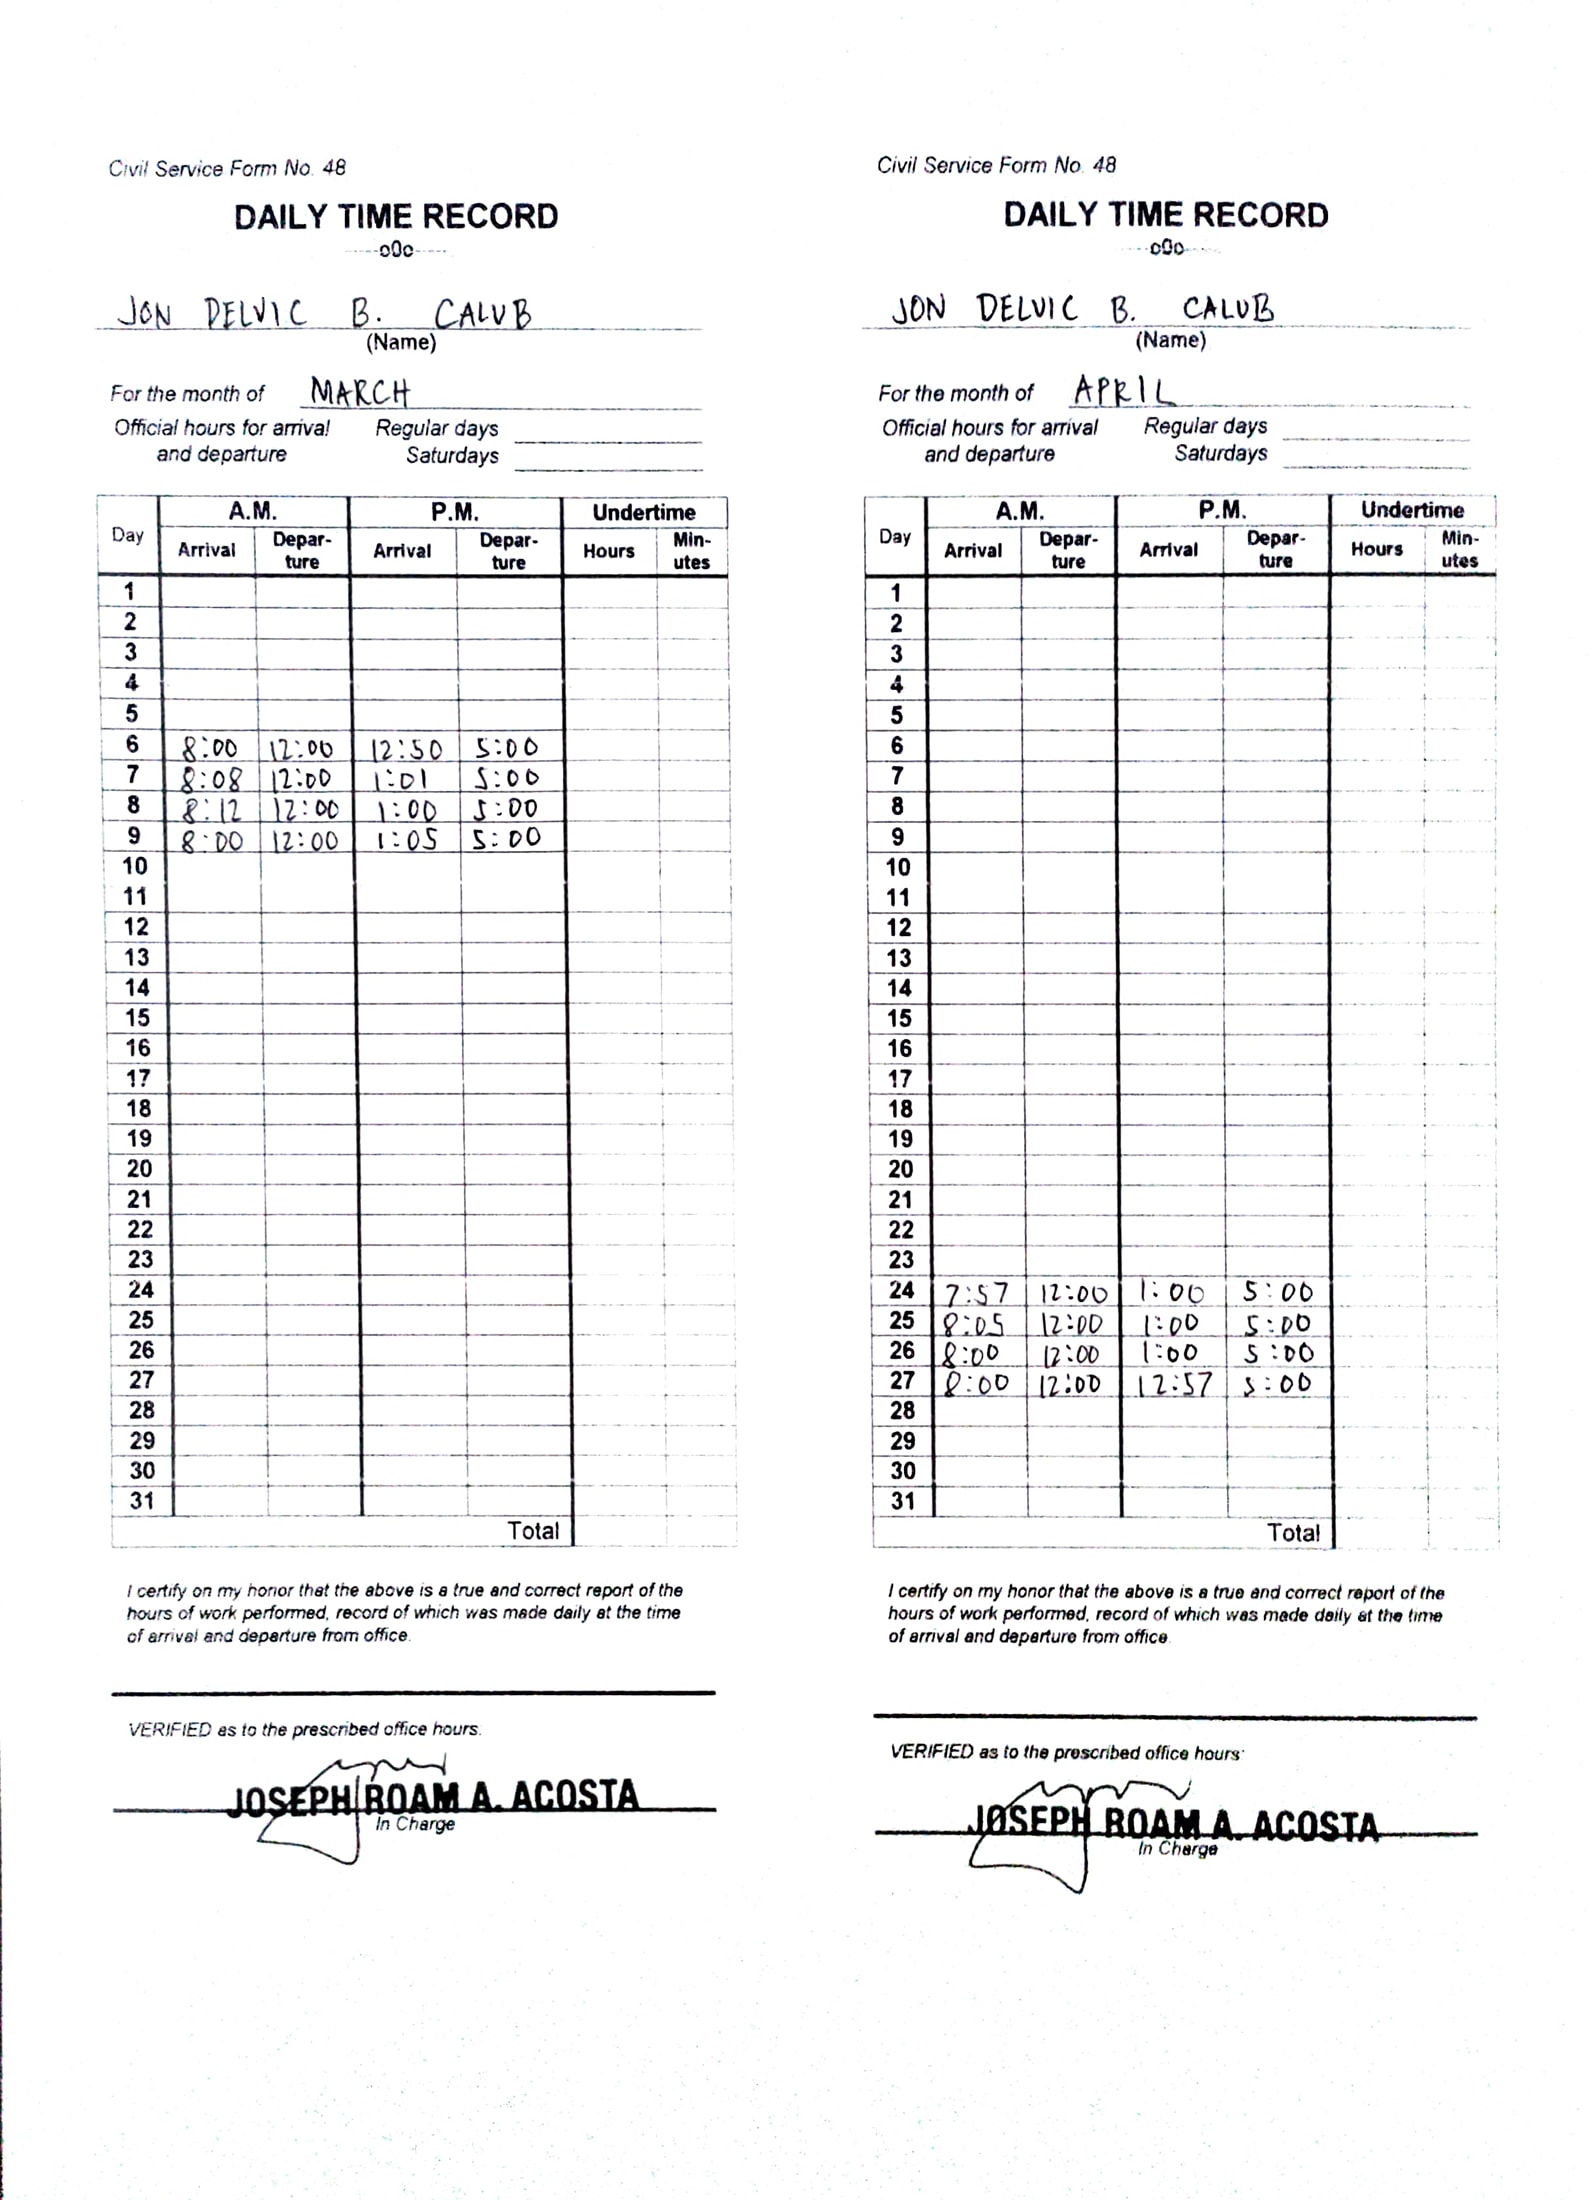 Civil Service Form No. 48
DAILY TIME RECORD
-----o0o-----
JON DELVIC B. CALUB
(Name)
For the month of MARCH
Official hours for arrival Regular days
and departure Saturdays
Day A.M. P.M. Undertime
Arrival Depar- ture Arrival Depar- ture Hours Min- utes
1
2
3
4
5
6 8:00 12:00 12:50 5:00
7 8:08 12:00 1:01 5:00
8 8:12 12:00 1:00 5:00
9 8:00 12:00 1:05 5:00
10
11
12
13
14
15
16
17
18
19
20
21
22
23
24
25
26
27
28
29
30
31
Total
I certify on my honor that the above is a true and correct report of the
hours of work performed, record of which was made daily at the time
of arrival and departure from office.
VERIFIED as to the prescribed office hours.
JOSEPH ROAM A. ACOSTA
In Charge
Civil Service Form No. 48
DAILY TIME RECORD
-----o0o-----
JON DELVIC B. CALUB
(Name)
For the month of APRIL
Official hours for arrival Regular days
and departure Saturdays
Day A.M. P.M. Undertime
Arrival Depar- ture Arrival Depar- ture Hours Min- utes
1
2
3
4
5
6
7
8
9
10
11
12
13
14
15
16
17
18
19
20
21
22
23
24 7:57 12:00 1:00 5:00
25 8:05 12:00 1:00 5:00
26 8:00 12:00 1:00 5:00
27 8:00 12:00 12:57 5:00
28
29
30
31
Total
I certify on my honor that the above is a true and correct report of the
hours of work performed, record of which was made daily at the time
of arrival and departure from office.
VERIFIED as to the prescribed office hours.
JOSEPH ROAM A. ACOSTA
In Charge